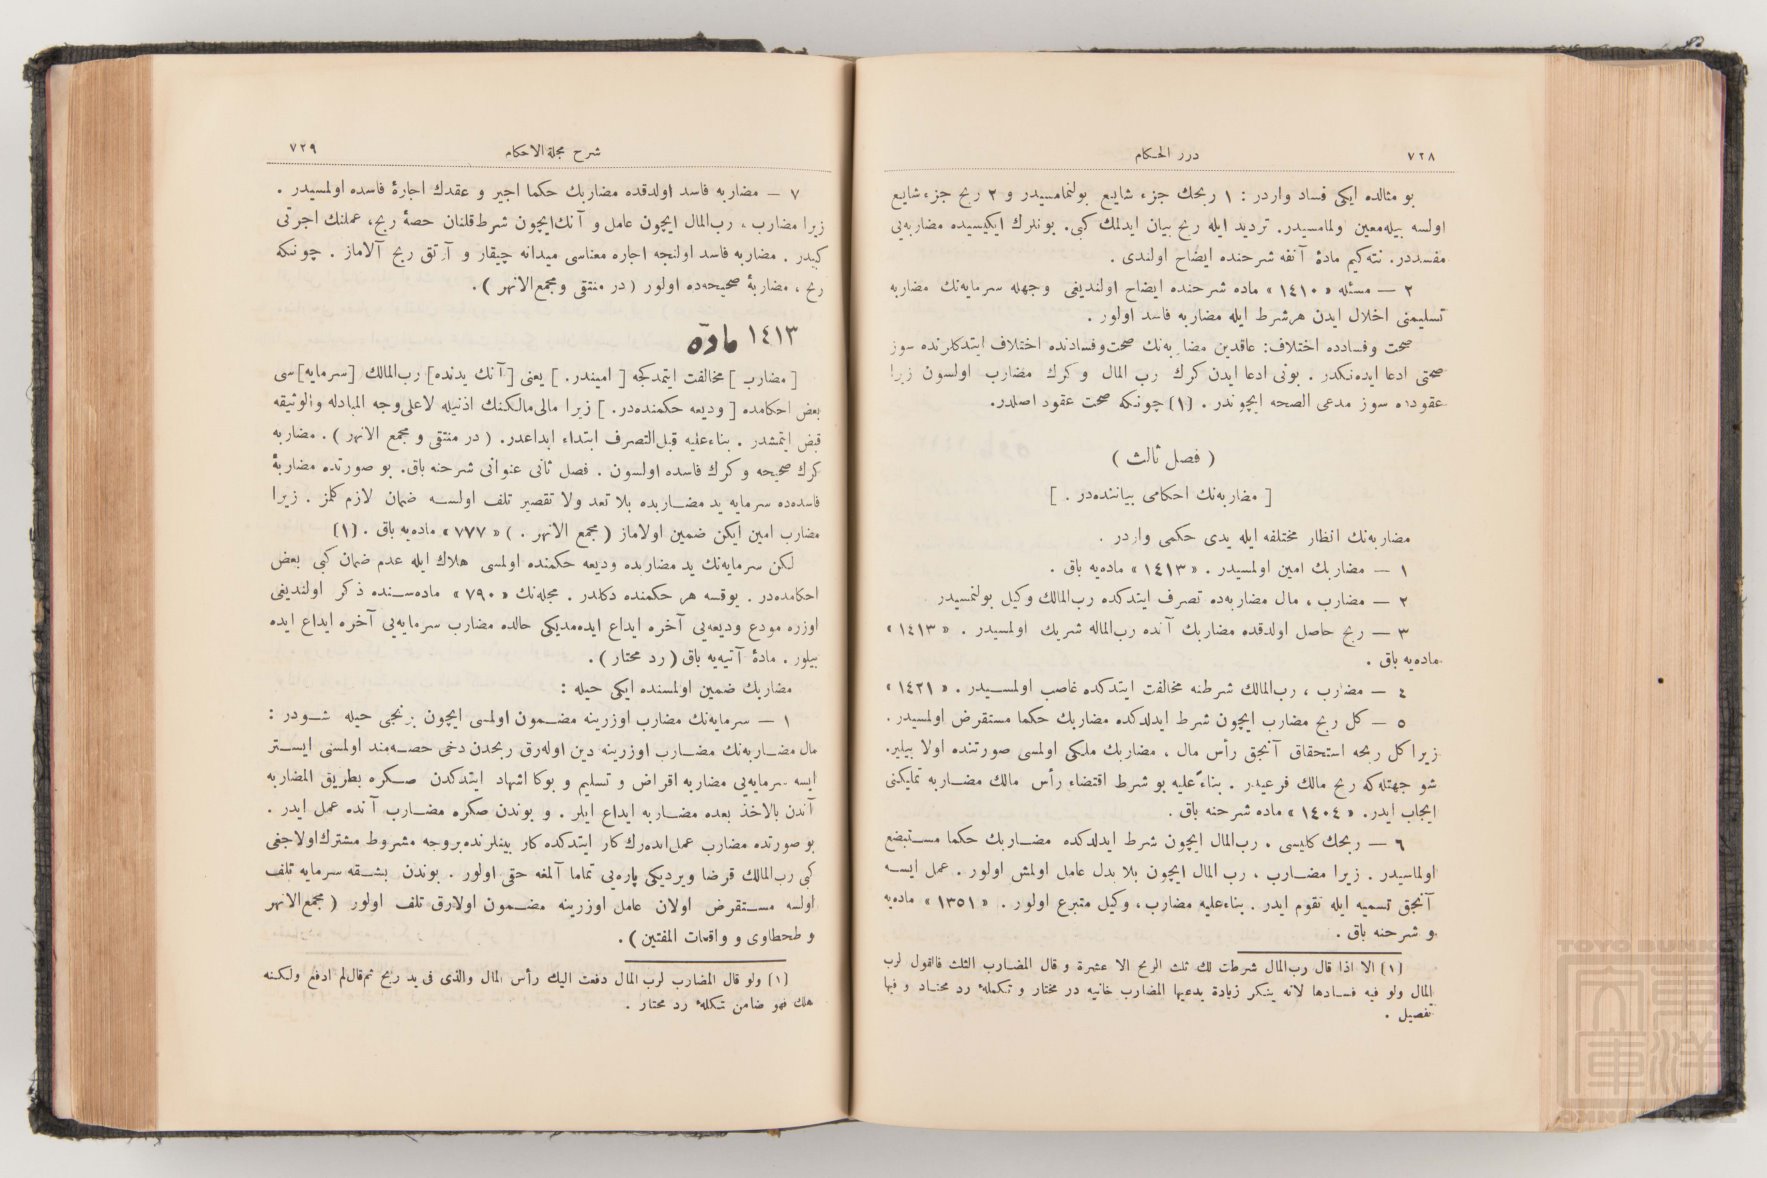 ٧٢٨
درر الحكام
بو مثالده ايكى فساد واردر : ١ ربحك جزء شايع بولنمامسيدر و ٢ ربح جزء شايع
اولسه بيله معين اولمامسيدر. ترديد ايله ربح بيان ايدلمك كبى. بونلرك ايكيسيده مضاربه‌يى
مفسددر. نته‌كيم مادهٔ آنفه شرحنده ايضاح اولندى .
٢ — مسئله « ١٤١٠ » ماده شرحنده ايضاح اولنديغى وجهله سرمايه‌نك مضاربه
تسليمنى اخلال ايدن هرشرط ايله مضاربه فاسد اولور .
صحت وفسادده اختلاف: عاقدين مضاربه‌نك صحت‌وفسادنده اختلاف ايتدكلرنده سوز
صحتى ادعا ايده‌نكدر . بونى ادعا ايدن كرك رب المال و كرك مضارب اولسون زيرا
عقودده سوز مدعى الصحه ايچوندر . [١] چونكه صحت عقود اصلدر.
( فصل ثالث )
[ مضاربه‌نك احكامى بياننده‌در . ]
مضاربه‌نك انظار مختلفه ايله يدى حكمى واردر .
١ — مضاربك امين اولمسيدر . « ١٤١٣ » ماده‌يه باق .
٢ — مضارب ، مال مضاربه‌ده تصرف ايتدكده رب‌المالك وكيل بولنمسيدر
٣ — ربح حاصل اولدقده مضاربك آنده رب‌الماله شريك اولمسيدر . « ١٤١٣ »
ماده‌يه باق .
٤ — مضارب ، رب‌المالك شرطنه مخالفت ايتدكده غاصب اولمسيدر . « ١٤٢١ »
٥ — كل ربح مضارب ايچون شرط ايدلدكده مضاربك حكما مستقرض اولمسيدر .
زيرا كل ربحه استحقاق آنجق رأس مال ، مضاربك ملكى اولمسى صورتنده اولا بيلير.
شو جهتله‌كه ربح مالك فرعيدر . بناءً عليه بو شرط اقتضاء رأس مالك مضاربه تمليكنى
ايجاب ايدر. « ١٤٠٤ » ماده شرحنه باق .
٦ — ربحك كليسى . رب‌المال ايچون شرط ايدلدكده مضاربك حكما مستبضع
اولماسيدر . زيرا مضارب ، رب المال ايچون بلا بدل عامل اولمش اولور . عمل ايسه
آنجق تسميه ايله تقوم ايدر . بناءعليه مضارب، وكيل متبرع اولور . « ١٣٥١ » ماده‌يه
و شرحنه باق .
[١] الا اذا قال رب‌المال شرطت لك ثلث الربح الا عشرة و قال المضارب الثلث فالقول لرب
المال ولو فيه فسادها لانه ينكر زيادة يدعيها المضارب خانيه در مختار و تكملهٔ رد محتار و فيها
تفصيل .
شرح مجلة الاحكام
٧٢٩
٧ — مضاربه فاسد اولدقده مضاربك حكما اجير و عقدك اجارهٔ فاسده اولمسيدر .
زيرا مضارب ، رب‌المال ايچون عامل و آنك‌ايچون شرط‌قلنان حصهٔ ربح، عملنك اجرتى
كبيدر . مضاربه فاسد اولنجه اجاره معناسى ميدانه چيقار و آرتق ربح آلاماز . چونكه
ربح ، مضاربهٔ صحيحه‌ده اولور ( در منتقى ومجمع‌الانهر ) .
١٤١٣ مادّه
[ مضارب ] مخالفت ايتمدكجه [ اميندر . ] يعنى [ آنك يدنده] رب‌المالك [سرمايه] سى
بعض احكامده [ وديعه حكمنده‌در . ] زيرا مالى‌مالكنك اذنيله لاعلى‌وجه المبادله والوثيقه
قبض ايتمشدر . بناءعليه قبل‌التصرف ابتداء ايداعدر. ( در منتقى و مجمع الانهر ) . مضاربه
كرك صحيحه و كرك فاسده اولسون . فصل ثانى عنوانى شرحنه باق. بو صورتده مضاربهٔ
فاسده‌ده سرمايه يد مضاربده بلا تعد ولا تقصير تلف اولسه ضمان لازم كلمز . زيرا
مضارب امين ايكن ضمين اولاماز ( مجمع الانهر . ) « ٧٧٧ » ماده‌يه باق . [١]
لكن سرمايه‌نك يد مضاربده وديعه حكمنده اولمسى هلاك ايله عدم ضمان كبى بعض
احكامده‌در . يوقسه هر حكمنده دكلدر . مجله‌نك « ٧٩٠ » ماده‌سنده ذكر اولنديغى
اوزره مودع وديعه‌يى آخره ايداع ايده‌مديكى حالده مضارب سرمايه‌يى آخره ايداع ايده
بيلور . مادهٔ آتيه‌يه باق ( رد محتار ) .
مضاربك ضمين اولمسنده ايكى حيله :
١ — سرمايه‌نك مضارب اوزرينه مضمون اولمسى ايچون برنجى حيله شودر :
مال مضاربه‌نك مضارب اوزرينه دين اوله‌رق ربحدن دخى حصه‌مند اولمسنى ايستر
ايسه سرمايه‌يى مضاربه اقراض و تسليم و بوكا اشهاد ايتدكدن صكره بطريق المضاربه
آندن بالاخذ بعده مضاربه ايداع ايلر . و بوندن صكره مضارب آنده عمل ايدر .
بو صورتده مضارب عمل‌ايده‌رك كار ايتدكده كار بينلرنده بروجه مشروط مشترك‌اولاجغى
كبى رب‌المالك قرضا ويرديكى پاره‌يى تماما آلمغه حقى اولور . بوندن بشقه سرمايه تلف
اولسه مستقرض اولان عامل اوزرينه مضمون اولارق تلف اولور ( مجمع‌الانهر
و طحطاوى و واقعات المفتين ) .
[١] ولو قال المضارب لرب المال دفعت اليك رأس المال والذى فى يد ربح ثم‌قال‌لم ادفع ولكنه
هلك فهو ضامن تكملهٔ رد محتار .